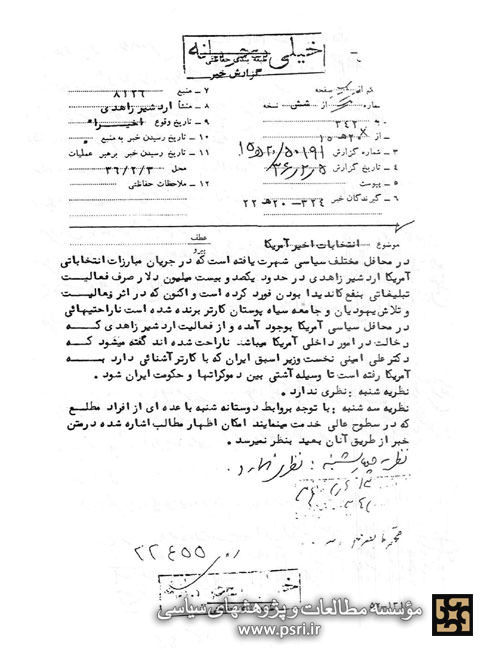 خیلی محرمانه
طبقه بندی حفاظتی
گزارش خبر
۷ ـ منبع ۸۱۲۶
۸ ـ منشأ اردشیر زاهدی
شش نسخه
۹ ـ تاریخ وقوع اخیرا"
۳۴۲
۱۰ ـ تاریخ رسیدن خبر به منبع
از ۲۰ هـ ۱۵
۱۱ ـ تاریخ رسیدن خبر برهبر عملیات
۳ ـ شماره گزارش
محل ۳۶/۲/۳
۴ ـ تاریخ گزارش
۱۲ ـ ملاحظات حفاظتی
۵ ـ پیوست
۶ ـ گیرندگان خبر ۳۲۴ ـ ۲۰ هـ ۲۲
عطف
پیرو
موضوع انتخابات اخیر آمریکا
در محافل مختلف سیاسی شهرت یافته است که در جریان مبارزات انتخاباتی
آمریکا اردشیر زاهدی در حدود یکصد و بیست میلیون دلار صرف فعالیت
تبلیغاتی بنفع کاندیدا بودن فورد کرده است و اکنون که در اثر فعالیت
و تلاش یهودیان و جامعه سیاه پوستان کارتر برنده شده است ناراحتیهائی
در محافل سیاسی آمریکا بوجود آمده و از فعالیت اردشیر زاهدی که
دخالت در امور داخلی آمریکا میباشد ناراحت شده اند گفته میشود که
دکتر علی امینی نخست وزیر اسبق ایران که با کارتر آشنائی دارد به
آمریکا رفته است تا وسیله آشتی بین دموکراتها و حکومت ایران شود .
نظریه شنبه : نظری ندارد .
نظریه سه شنبه : با توجه بروابط دوستانه شنبه با عده ای از افراد مطلع
که در سطوح عالی خدمت مینمایند امکان اظهار مطالب اشاره شده در متن
خبر از طریق آنان بعید بنظر نمیرسد .
نظریه چهارشنبه : نظری ندارد .
۲۲۶۵۵
مؤسسه مطالعات و پژوهشهای سیاسی
www.psri.ir